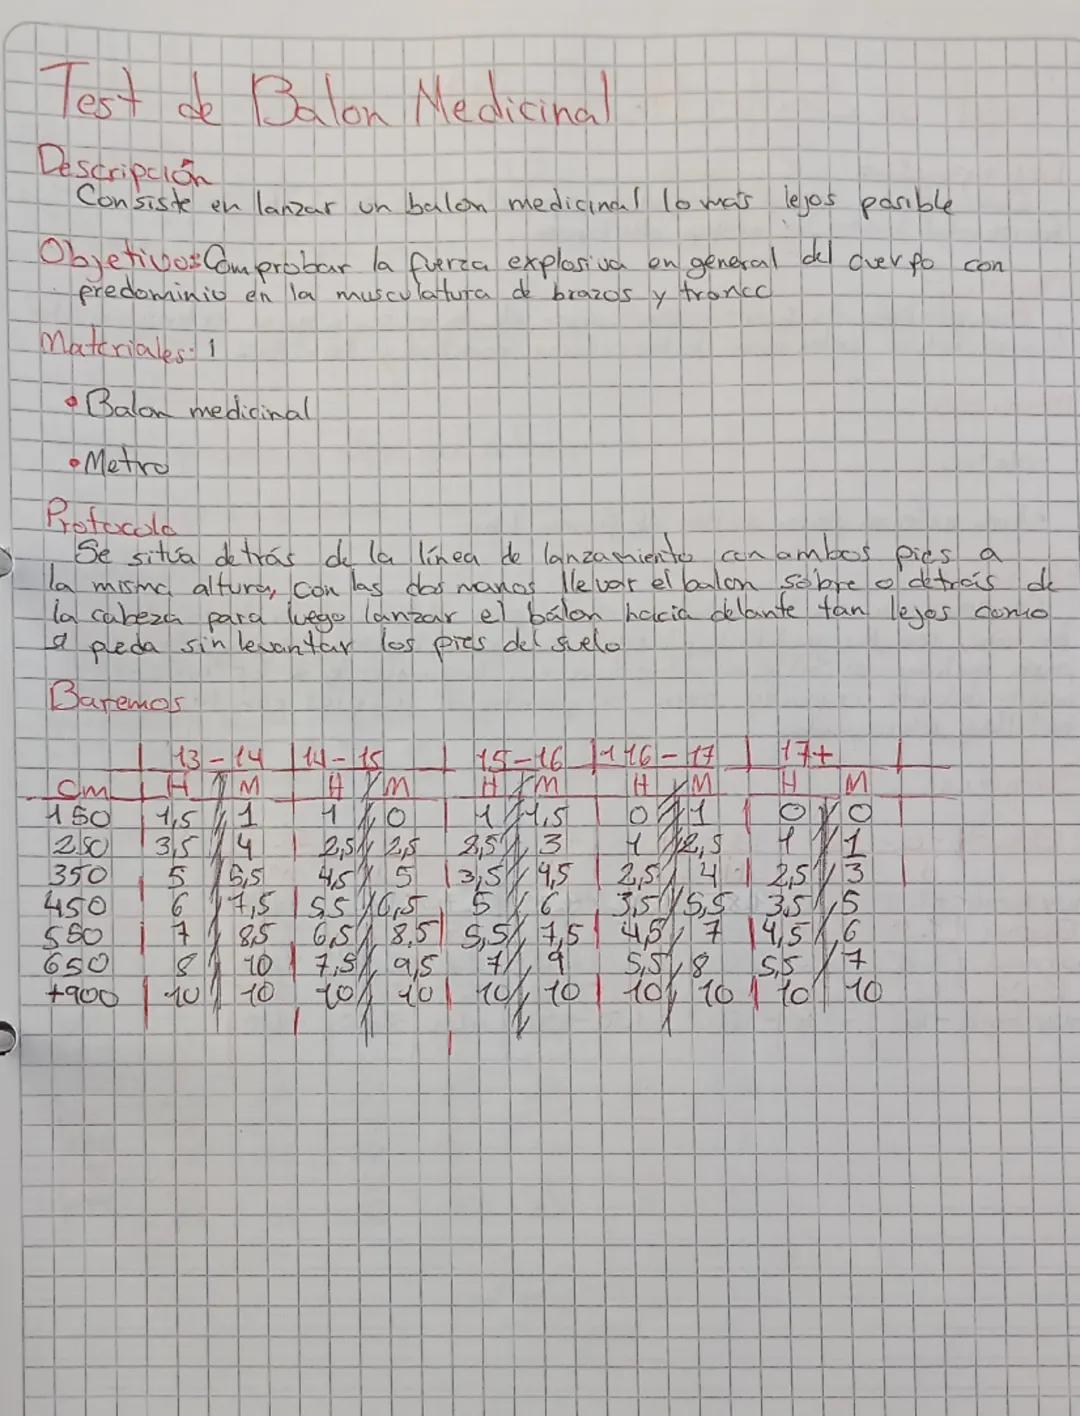 Test de Balon Medicinal
Descripción
Consiste en lanzar un balón medicinal lo más lejos posible
Objetivos: Comprobar la fuerza explosiva en general del cuerpo con
predominio en la musculatura de brazos y tronco
Materiales: 1
• Balon medicinal
• Metro
Protocolo
Se sitúa detrás de la línea de lanzamiento con ambos pies a
la misma altura, con las dos manos llevar el balon sobre o detrás de
la cabeza para luego lanzar el balon hacia delante tan lejos como
pueda sin levantar los pies del suelo
Baremos
13-14 14-15 15-16 16-17 17+
Cm H M H M H M H M H M
150 1,5 1 1 0 1 1,5 0 1 0 0
250 3,5 4 2,5 2,5 2,5 3 1 2,5 1 1
350 5 5,5 4,5 5 3,5 4,5 2,5 4 2,5 3
450 6 7,5 5,5 6,5 5 6 3,5 5,5 3,5 5
550 7 8,5 6,5 8,5 5,5 7,5 4,5 7 4,5 6
650 8 10 7,5 9,5 7 9 5,5 8 5,5 7
+900 10 10 10 10 10 10 10 10 10 10